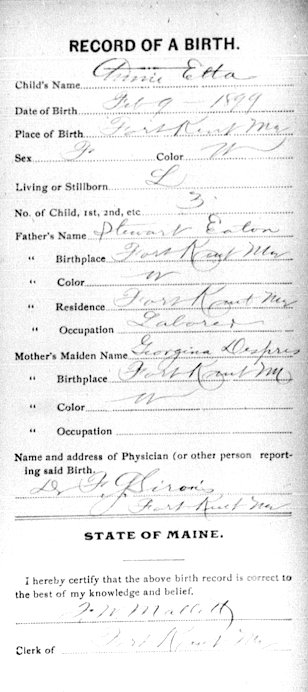 RECORD OF A BIRTH.
Child's Name Annie Etta
Date of Birth Feb 9 - 1899
Place of Birth Fort Kent Me
Sex F Color W
Living or Stillborn L
No. of Child, 1st, 2nd, etc 3
Father's Name Stewart Eaton
" Birthplace Fort Kent Me
" Color W
" Residence Fort Kent Me
" Occupation Laborer
Mother's Maiden Name Georgina Despres
" Birthplace Fort Kent M
" Color W
" Occupation
Name and address of Physician (or other person report-
ing said Birth.
Dr F G Sirois
Fort Kent Me
STATE OF MAINE.
I hereby certify that the above birth record is correct to
the best of my knowledge and belief.
Mallett
Clerk of Fort Kent Me